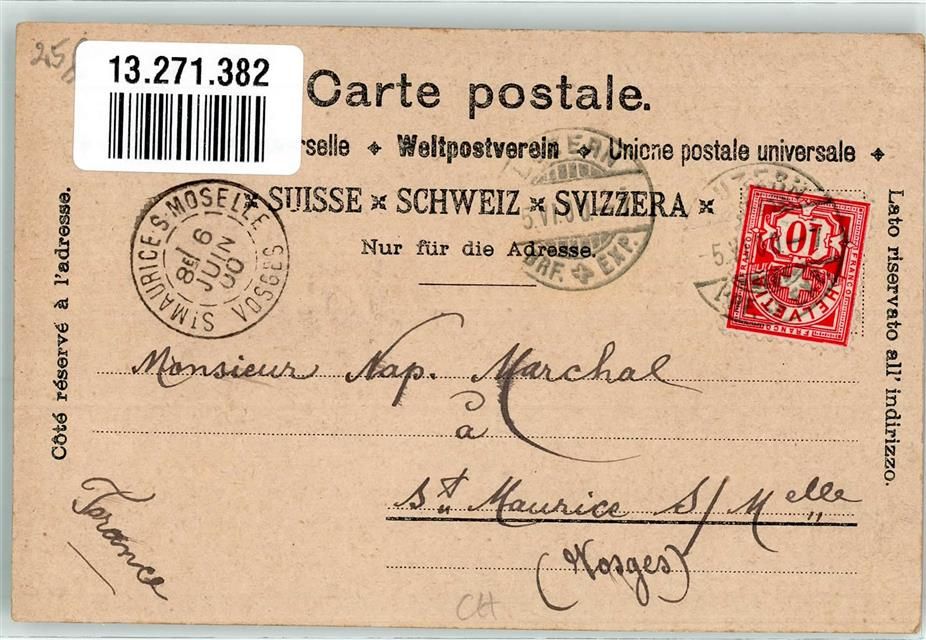 25
13.271.382
Carte postale.
rselle Weltpostverein Unione postale universale
SUISSE SCHWEIZ SVIZZERA
Nur für die Adresse.
Côté réservé à l'adresse.
Lato riservato all' indirizzo.
ST MAURICE-S-MOSELLE VOSGES
8E 6 JUIN 00
LUZERN
5.VI.00
BRF. EXP.
LUZERN
10
FRANCO
HELVETIA
Monsieur Nap. Marchal
à
St. Maurice S/ Melle
(Vosges)
France
CH